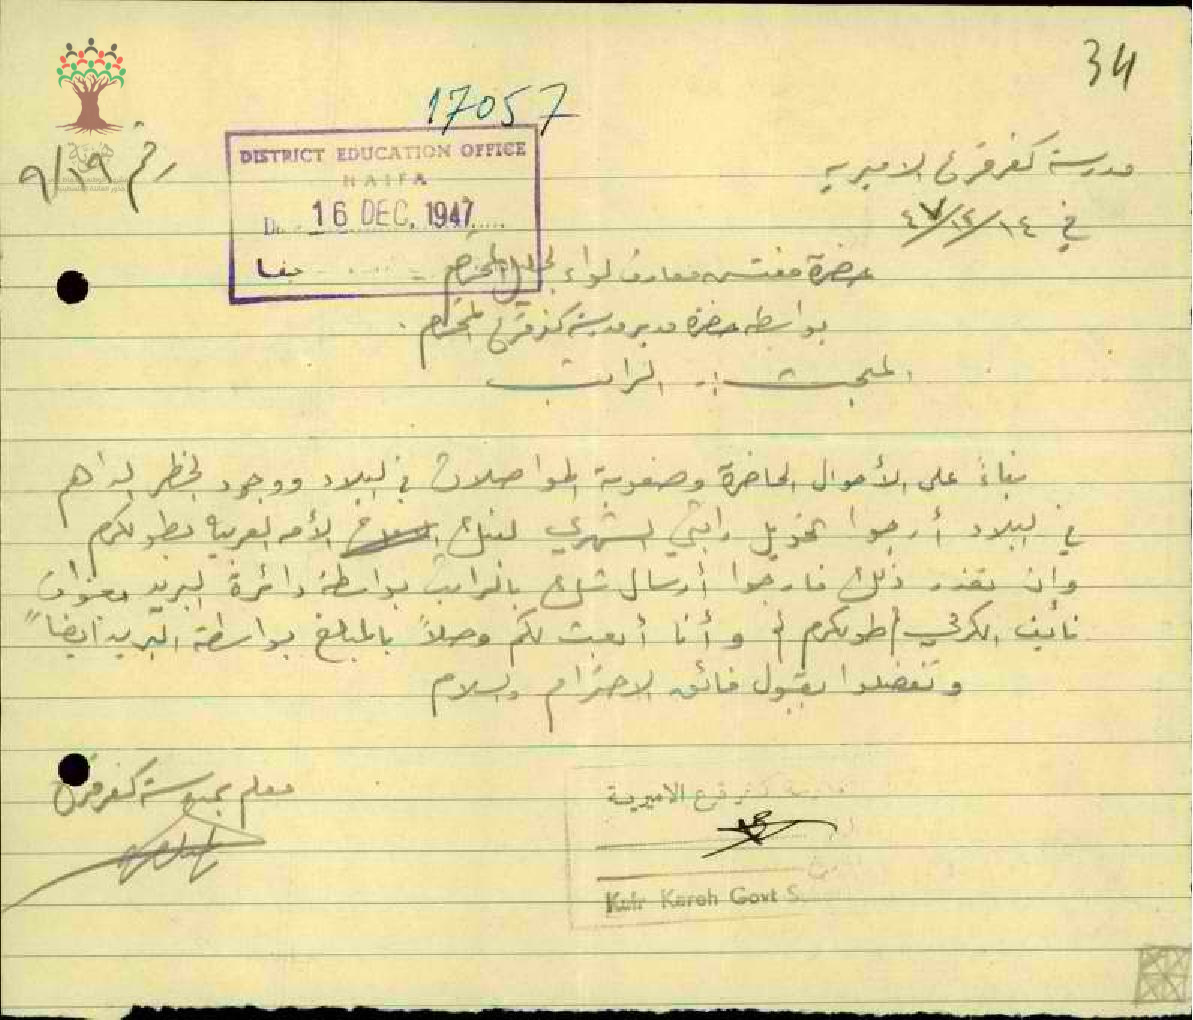 34
17057
DISTRICT EDUCATION OFFICE
HAIFA
16 DEC. 1947
حيفا
رقم ٩/١٩
مدرسة كفر قرع الاميريه
في ١٤/١٢/٤٧
حضرة مفتش معارف لواء الجليل المحترم
بواسطه حضرة مدير مدرسة كفر قرع المحترم.
المبحث :- الراتب
بناءً على الأحوال الحاضرة وصعوبة المواصلات في البلاد ووجود الخطر الداهم
في البلاد أرجوا تحويل راتبي الشهري لبنك الأمه العربيه بطولكرم
وان تعذر ذلك فارجوا أرسال شك بالراتب بواسطة دائرة البريد بعنوان
نائف الكرمي / طولكرم / و أنا أبعث لكم وصلاً بالمبلغ بواسطة البريد ايضاً
وتفضلوا بقبول فائق الاحترام والسلام
معلم بمدرسة كفر قرع
مدرسة كفر قرع الاميرية
التاريخ
Kufr Kareh Govt S